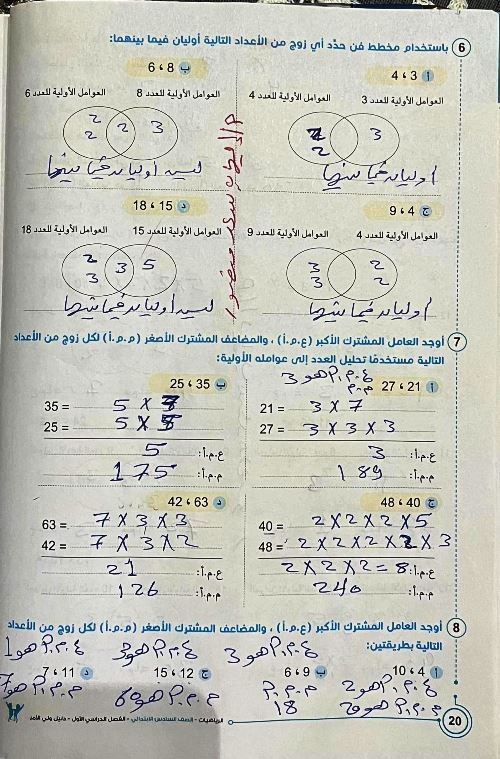 6 باستخدام مخطط فن حدَّد أي زوج من الأعداد التالية أوليان فيما بينهما:
أ 3 ، 4
ب 8 ، 6
العوامل الأولية للعدد 3 العوامل الأولية للعدد 4
العوامل الأولية للعدد 8 العوامل الأولية للعدد 6
2 2 3
2 2 2 3
أوليان فيما بينهما
ليس أوليان فيما بينهما
ج 4 ، 9
د 15 ، 18
العوامل الأولية للعدد 4 العوامل الأولية للعدد 9
العوامل الأولية للعدد 15 العوامل الأولية للعدد 18
3 3 2 2
2 3 3 5
أوليان فيما بينهما
ليس أوليان فيما بينهما
7 أوجد العامل المشترك الأكبر (ع.م.أ) ، والمضاعف المشترك الأصغر (م.م.أ) لكل زوج من الأعداد
التالية مستخدمًا تحليل العدد إلى عوامله الأولية:
أ 21 ، 27
ع.م.أ هو 3
21 = 3 X 7
27 = 3 X 3 X 3
ع.م.أ: 3
م.م.أ: 189
ب 35 ، 25
35 = 5 X 7
25 = 5 X 5
ع.م.أ: 5
م.م.أ: 175
ج 40 ، 48
40 = 2 X 2 X 2 X 5
48 = 2 X 2 X 2 X 2 X 3
ع.م.أ: 2 X 2 X 2 = 8
م.م.أ: 240
د 63 ، 42
63 = 7 X 3 X 3
42 = 7 X 3 X 2
ع.م.أ: 21
م.م.أ: 126
8 أوجد العامل المشترك الأكبر (ع.م.أ) ، والمضاعف المشترك الأصغر (م.م.أ) لكل زوج من الأعداد
التالية بطريقتين:
ع.م.أ هو 3 ع.م.أ هو 3 ع.م.أ هو 1
أ 4 ، 10 ب 9 ، 6 ج 12 ، 15 د 11 ، 7
ع.م.أ هو 2 م.م.أ
م.م.أ هو 20 18 م.م.أ هو 60 م.م.أ هو
الرياضيات - الصف السادس الابتدائي - الفصل الدراسي الأول - دليل ولي الأمر
20